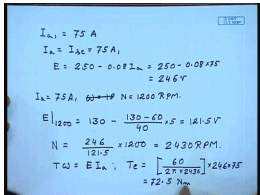 I_{a1} = 75 A
I_a = I_{se} = 75 A,
E = 250 - 0.08 I_a = 250 - 0.08 × 75
= 246 V
I_a = 75 A, N = 1200 RPM.
E|_{1200} = 130 - \frac{130-60}{40} × 5 = 121.5 V
N = \frac{246}{121.5} × 1200 = 2430 RPM.
Tω = E I_a ; T_e = [\frac{60}{2π × 2430}] × 246 × 75
= 72.5 Nm